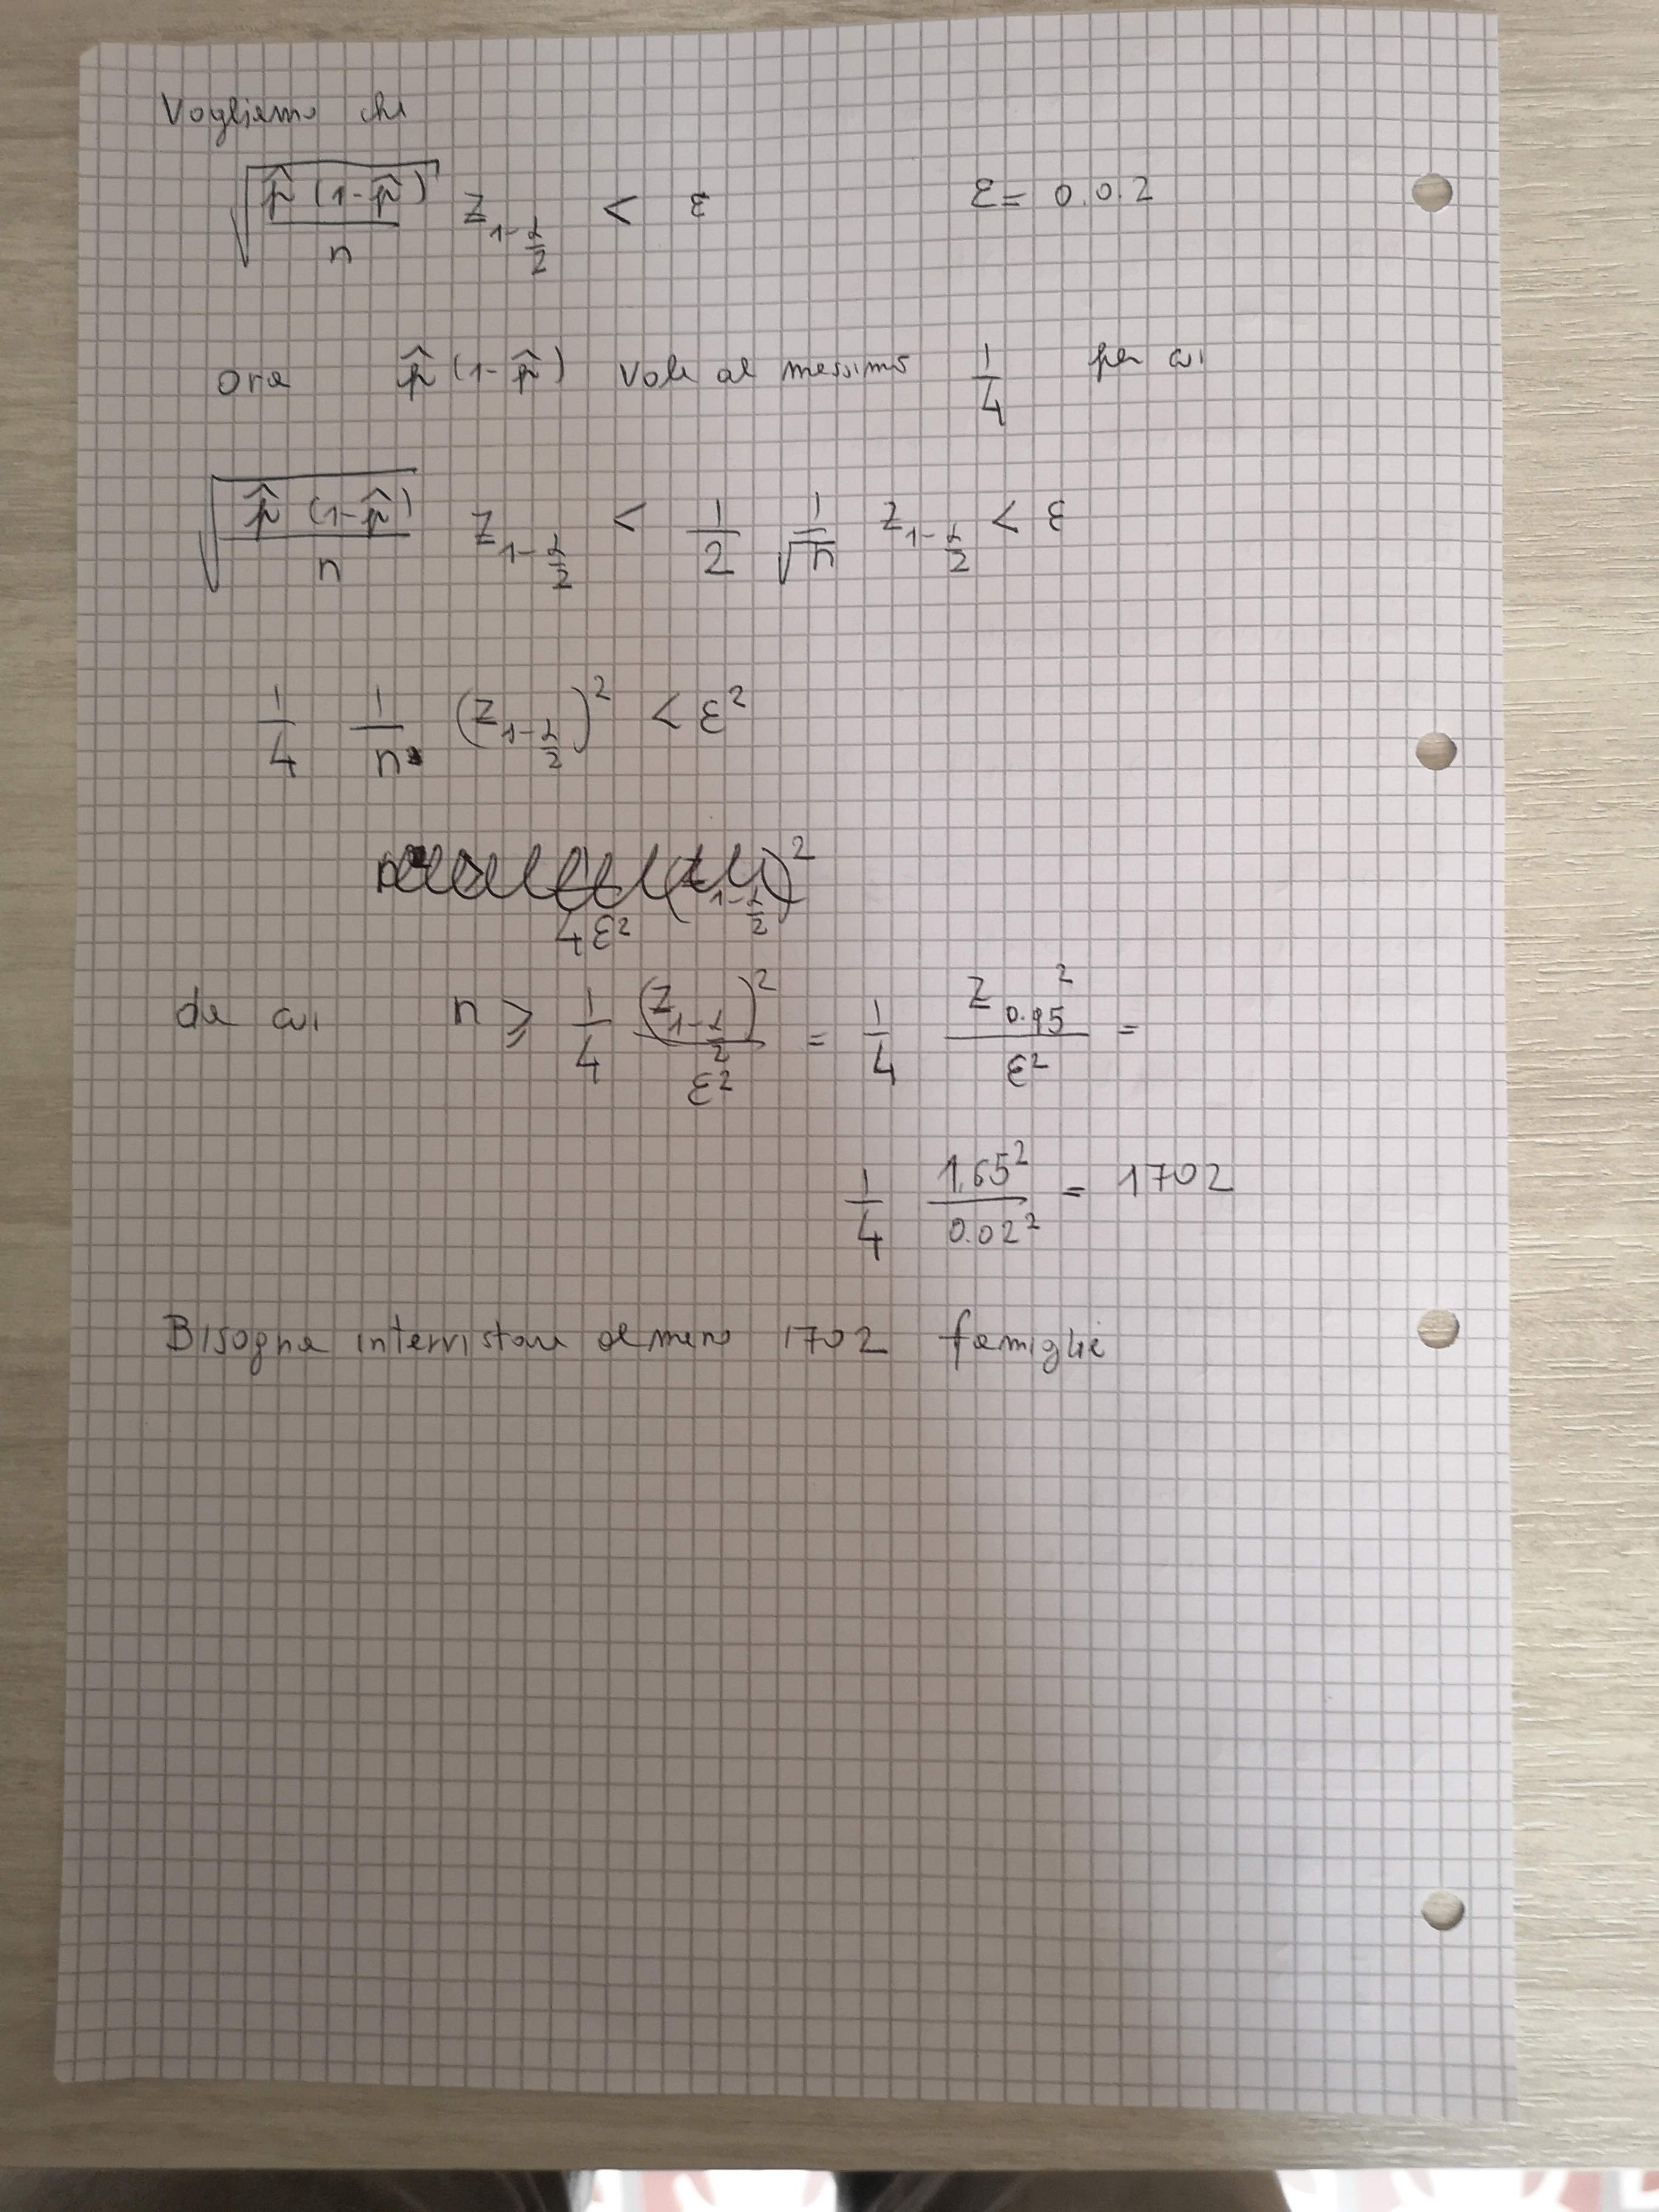 Vogliamo che
√(p̂(1-p̂)/n) Z_{1-α/2} < ε    ε = 0.0.2
ora p̂(1-p̂) vale al massimo 1/4 per cui
√(p̂(1-p̂)/n) Z_{1-α/2} < 1/2 1/√n Z_{1-α/2} < ε
1/4 1/n (Z_{1-α/2})² < ε²
da cui n ≥ 1/4 (Z_{1-α/2})²/ε² = 1/4 Z_{0.95}²/ε² =
1/4 1,65²/0.02² = 1702
Bisogna intervistare almeno 1702 famiglie